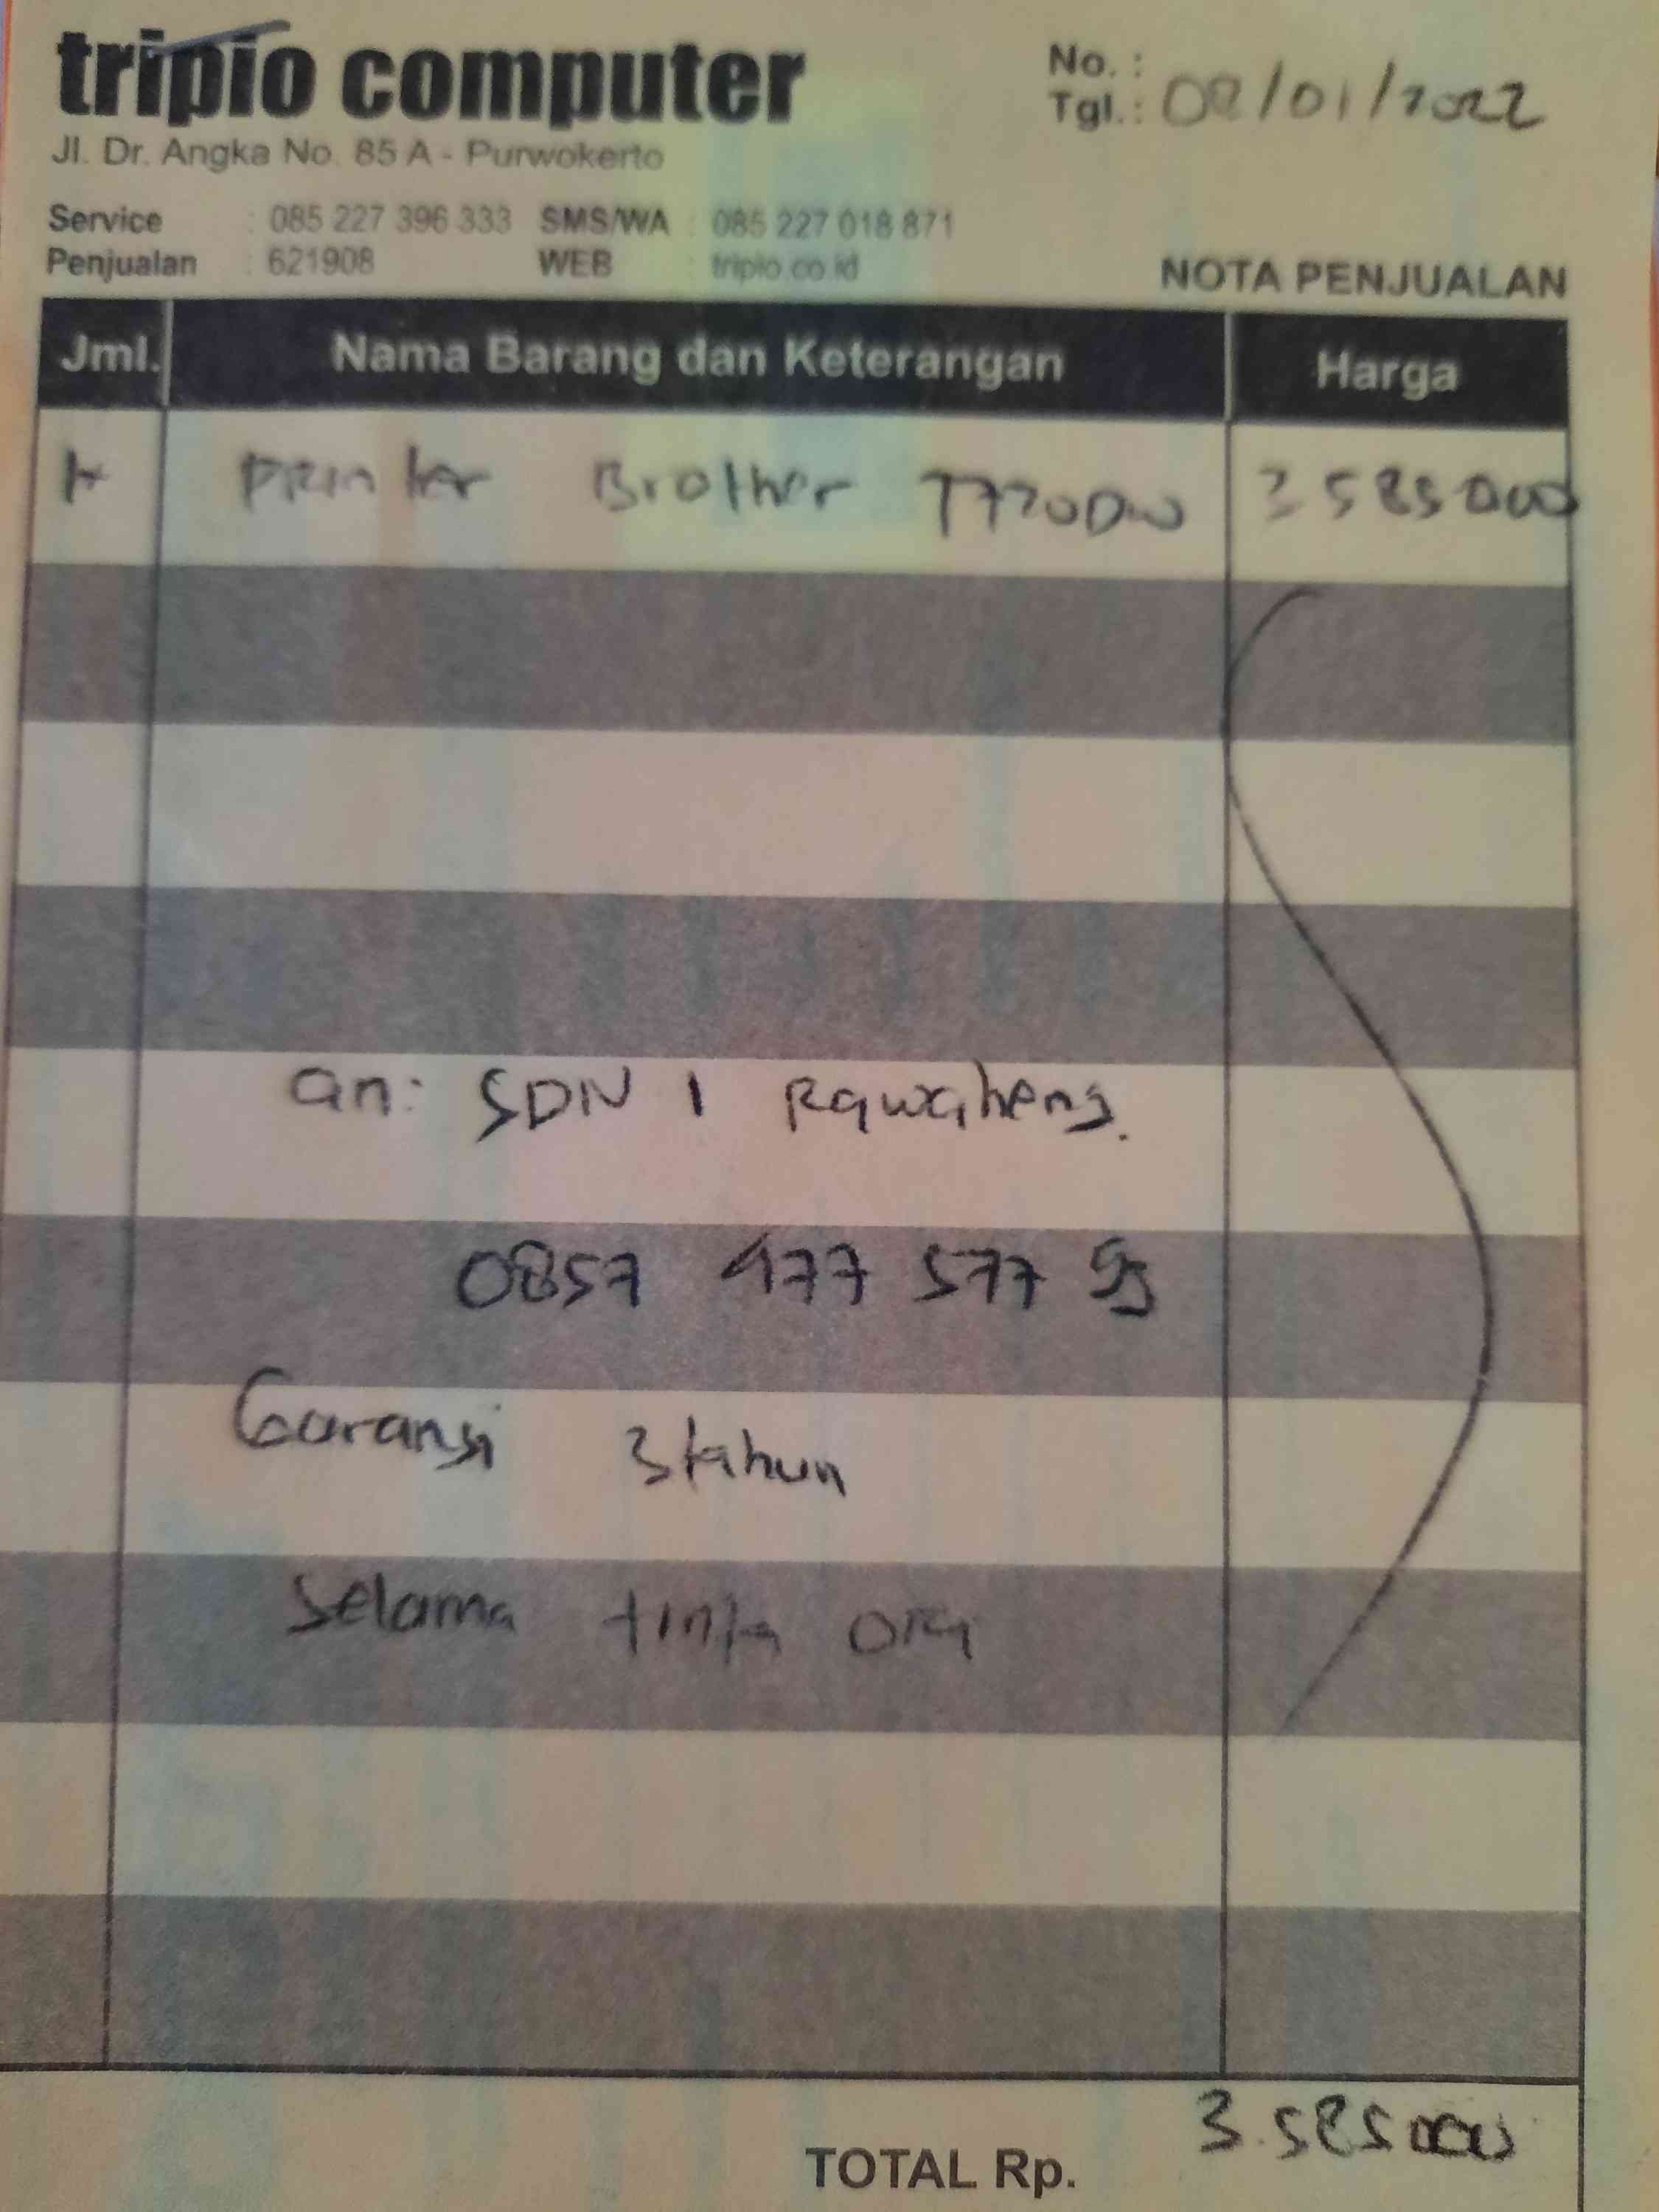 triplo computer
No. :
Tgl. : 08/01/2022
Jl. Dr. Angka No. 85 A - Purwokerto
Service : 085 227 396 333 SMS/WA : 085 227 018 871
Penjualan : 621908 WEB : triplo.co.id
NOTA PENJUALAN
Jml. Nama Barang dan Keterangan Harga
Printer Brother T720DW 3585000
an: SDN 1 Rawaheng.
0857 477 577 95
Garansi 3 tahun
Selama tinta ori
3.585000
TOTAL Rp.